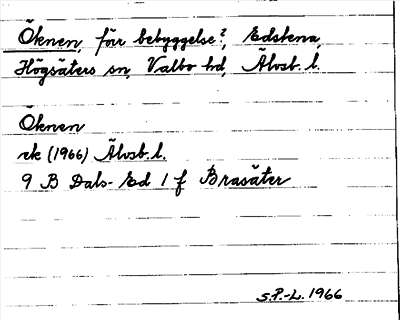 Öknen, förr bebyggelse?, Edstena,
Högsäters sn, Valbo hd, Älvsb. l.
Öknen
rk (1966) Älvsb. l.
9 B Dals-Ed 1 f Brasäter
S.P.-L. 1966